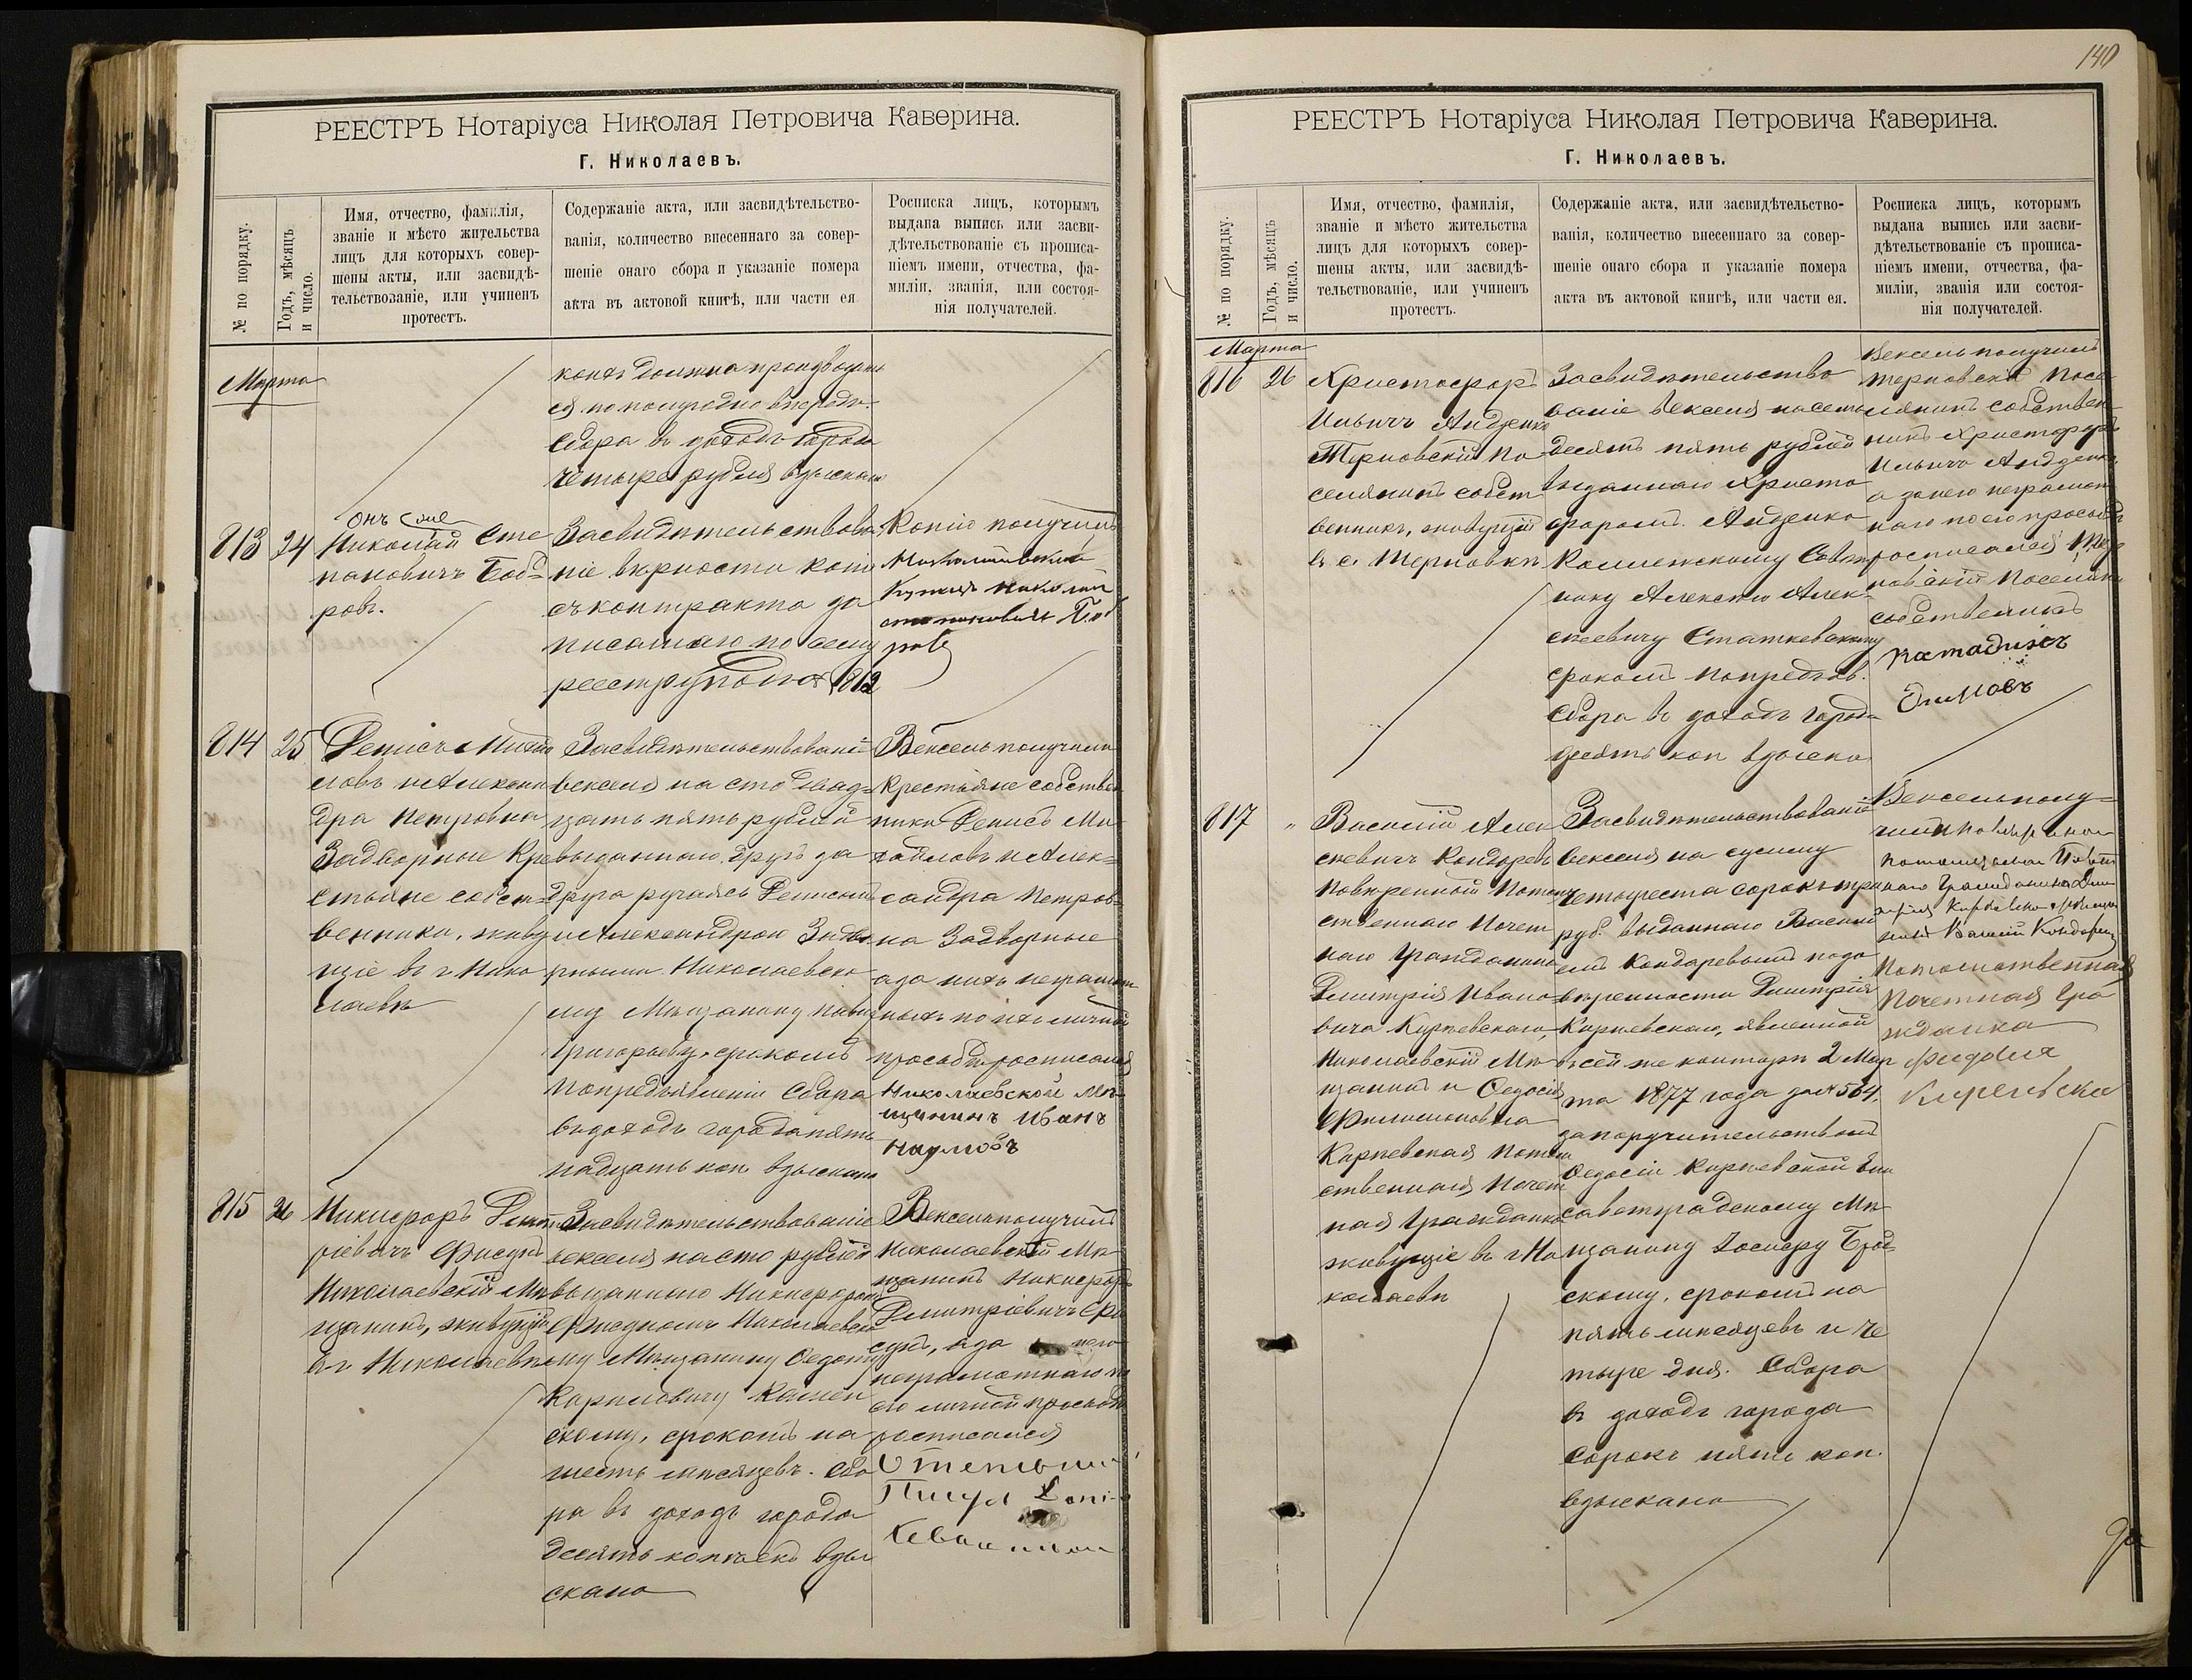 РЕЕСТРЪ Нотаріуса Николая Петровича Каверина.
Г. Николаевъ.
№ по порядку.
Годъ, мѣсяцъ
и число.
Имя, отчество, фамилія,
званіе и мѣсто жительства
лицъ для которыхъ совер-
шены акты, или засвидѣ-
тельствованіе, или учиненъ
протестъ.
Содержаніе акта, или засвидѣтельство-
ванія, количество внесеннаго за совер-
шеніе онаго сбора и указаніе номера
акта въ актовой книгѣ, или части ея
Росписка лицъ, которымъ
выдана выпись или засви-
дѣтельствованіе съ прописа-
ніемъ имени, отчества, фа-
миліи, званія, или состоя-
нія получателей.
Марта
должна производить
ся по полугодно впередъ.
Сбора въ доходъ города
четыре рубля взыскано
813
24
онъ же
Николай Сте
пановичъ Боб-
ровъ.
Засвидѣтельствова
ніе вѣрности копіи
съ контракта за
писаннаго по сему
реестру подъ № 812
Копію получилъ
Николаевскій
Купецъ Николай
Степановичъ Боб
ровъ
814
25
Денисъ Михай
ловъ и Алексан
дра Петровна
Задворные Кре
стьяне собст-
венники, живу
щіе въ г Нико
лаевѣ
Засвидѣтельствованіе
векселя на сто двад-
цать пять рублей
выданнаго, другъ за
друга ручаясь Денисомъ
и Александрою Задво
рными Николаевско
му Мѣщанину
Григорьеву, срокомъ
по предъявленіи Сбора
въ доходъ города пят
надцать коп взыскано
Вексель получили
Крестьяне собствен
ники Денисъ Ми
хайловъ и Алек-
сандра Петров-
на Задворные
а за нихъ неграмот
ныхъ по ихъ личной
просьбѣ росписался
Николаевской мѣ
щининъ Иванъ
Наумовъ
815
26
Никифоръ Дмит
ріевичъ Фисунъ
Николаевскій Мѣ
щанинъ, живущій
въ г Николаевѣ
Засвидѣтельствованіе
векселя на сто рублей
выданнаго Никифоромъ
Фисуномъ Николаевско
му Мѣщанину Федоту
Карповичу
скому, срокомъ на
шесть мѣсяцевъ. Сбо
ра въ доходъ города
десять копѣекъ взы
скано
Вексель получилъ
Николаевскій Мѣ
щанинъ Никифоръ
Дмитріевичъ Фи
сунъ, а за него
неграмотнаго по
его личной просьбѣ
росписался
140
РЕЕСТРЪ Нотаріуса Николая Петровича Каверина.
Г. Николаевъ.
№ по порядку.
Годъ, мѣсяцъ
и число.
Имя, отчество, фамилія,
званіе и мѣсто жительства
лицъ для которыхъ совер-
шены акты, или засвидѣ-
тельствованіе, или учиненъ
протестъ.
Содержаніе акта, или засвидѣтельство-
ванія, количество внесеннаго за совер-
шеніе онаго сбора и указаніе номера
акта въ актовой книгѣ, или части ея.
Росписка лицъ, которымъ
выдана выпись или засви-
дѣтельствованіе съ прописа-
ніемъ имени, отчества, фа-
миліи, званія или состоя-
нія получателей.
Марта
816
26
Христофоръ
Ильичъ
Терновскій По
селянинъ собст
венникъ, живущій
въ с. Терновкѣ
Засвидѣтельство
ваніе векселя на семь
десятъ пять рублей
выданнаго Христо
форомъ
Коллежскому Совѣт
нику Алексѣю Алек-
сѣевичу Статкевскому
срокомъ по предъяв.
Сбора въ доходъ город-
десять коп взыскано
Вексель получилъ
Терновскій Посе
лянинъ собствен
никъ Христофоръ
Ильичъ
а за него неграмот
наго по его просьбѣ
росписался Тер
новскій Поселянинъ
собственникъ
817
"
Василій Алек
сѣевичъ Кондаревъ
повѣренный Потом
ственнаго Почет
наго Гражданина
Дмитрія Ивано
вича Курпевскаго,
Николаевскій Мѣ
щанинъ и Федосія
Филимоновна
Карпевская Потом
ственная Почет
ная Гражданка
живущіе въ г Ни
колаевѣ
Засвидѣтельствованіе
векселя на сумму
четыреста сорокъ три
руб. выданнаго Васи
емъ Кондаревымъ по до
вѣренности Дмитрія
Карпевскаго, явленной
въ сей же конторѣ 2 Мар
та 1877 года за № 564,
за поручительствомъ
Федосіи Карпевской Ели
саветградскому Мѣ
щанину Іосифу Брод
скому, срокомъ на
пять мѣсяцевъ и че
тыре дня. Сбора
въ доходъ города
Сорокъ пять коп.
взыскано
Вексель полу-
чили повѣренной
Потомственнаго Почет
наго Гражданина Дми
Василій Кондаревъ
Потомственная
Почетная Гра
жданка